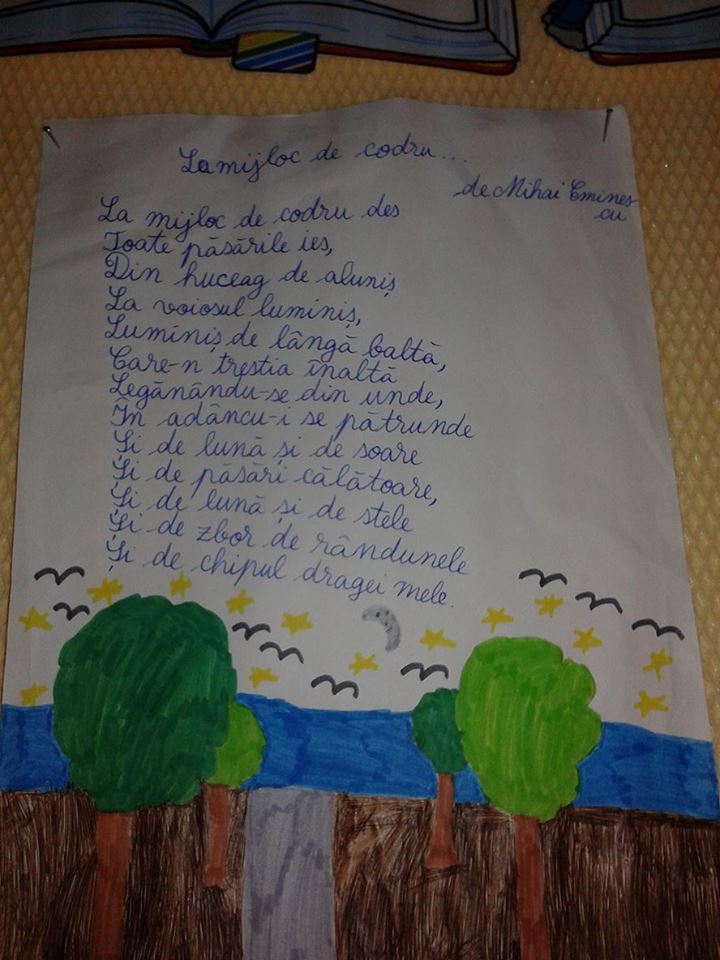 La mijloc de codru...
de Mihai Emines
cu
La mijloc de codru des
Toate păsările ies,
Din huceag de aluniș
La voiosul luminiș,
Luminiș de lângă baltă,
Care-n trestia înaltă
Legănându-se din unde,
În adâncu-i se pătrunde
Și de lună și de soare
Și de păsări călătoare,
Și de lună și de stele
Și de zbor de rândunele
Și de chipul dragei mele.